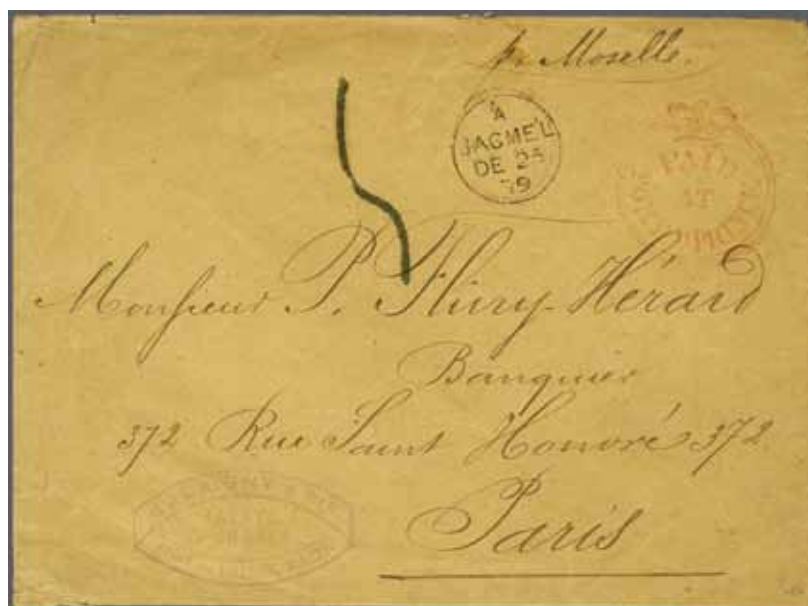 pr Moselle.
A
JACMEL
DE 25
79
PAID
AT
Monsieur P. Flury-Hérard
Banquier
372 Rue Saint Honoré 372
Paris